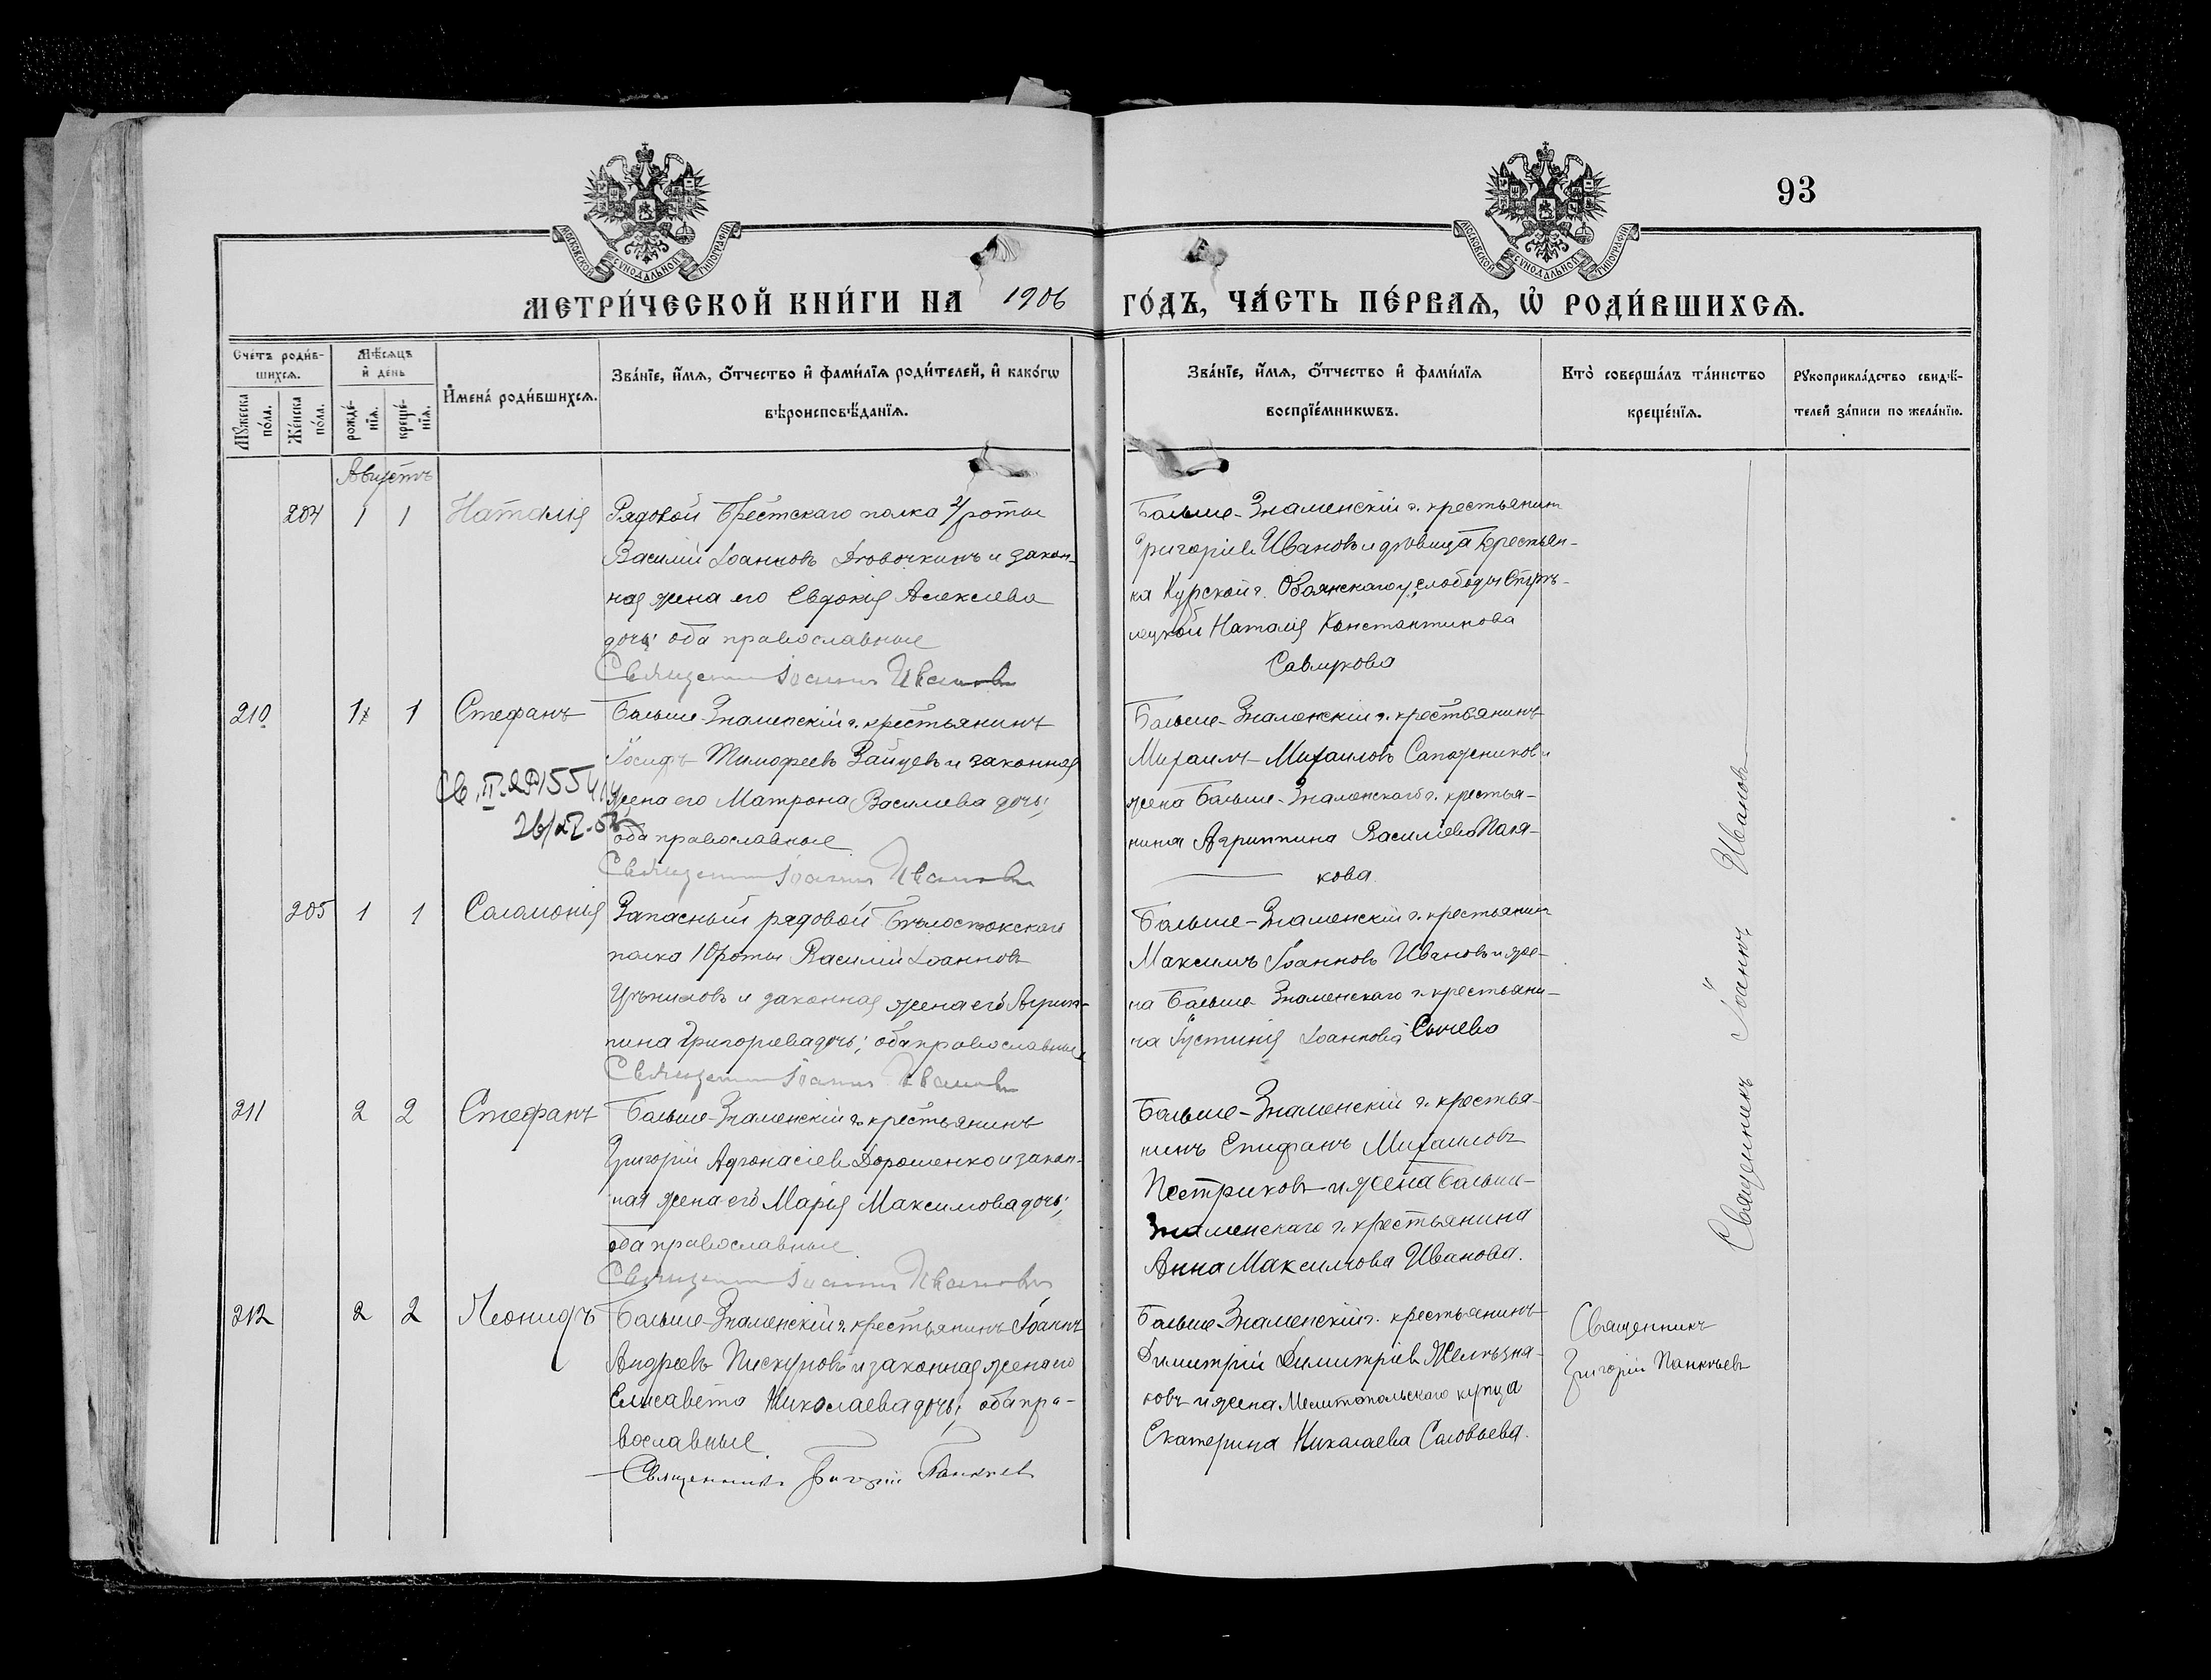 93
МОСКОВСКОЙ СѴНОДАЛЬНОЙ ТИПОГРАФІИ
МОСКОВСКОЙ СѴНОДАЛЬНОЙ ТИПОГРАФІИ
МЕТРИ́ЧЕСКОЙ КНИ́ГИ НА 1906 ГО́ДЪ, ЧА́СТЬ ПЕ́РВАѦ, Ѡ҆ РОДИ́ВШИХСѦ.
Сче́тъ роди́в-
шихсѧ.
Мꙋ́жеска по́ла.
Же́нска по́ла.
Мѣ́сѧцъ
и҆ де́нь
рожде́-
нїѧ.
креще́-
нїѧ.
И҆мена̀ роди́вшихсѧ.
Зва́нїе, и҆́мѧ, ѻ҆́тчество и҆ фами́лїѧ роди́телей, и҆ како́гѡ
вѣроисповѣ́данїѧ.
Зва́нїе, и҆́мѧ, ѻ҆́тчество и҆ фами́лїѧ
воспрїе́мникѡвъ.
Кто̀ соверша́лъ та́инство
креще́нїѧ.
Рꙋкоприкла́дство свидѣ́-
телей за́писи по жела́нїю.
Августъ
204 1 1 Наталія
Рядовой Брестскаго полка роты
Василій Іоанновъ Дѣвочкинъ и закон-
ная жена его Евдокія Алексіева
дочь; оба православные
Священникъ Іоаннъ Ивановъ
Больше-Знаменскій г. крестьянинъ
Григорій Ивановъ и дѣвица крестьян-
ка Курской г. Обоянскаго у. слободы Стрѣ-
лецкой Наталія Константинова
210 1 1 Стефанъ
Больше-Знаменскій г. крестьянинъ
Іосифъ Тимофеевъ Зайцевъ и законная
жена его Матрона Василіева дочь;
оба православные
Священникъ Іоаннъ Ивановъ
Больше-Знаменскій г. крестьянинъ
Михаилъ Михаиловъ Сапожниковъ и
жена Больше-Знаменскаго г. крестья-
нина Агриппина Василіева Поля-
кова
205 1 1 Саломонія
Запасный рядовой Бѣлостокскаго
полка 10 роты Василій Іоанновъ
и законная жена его Агрип-
пина Григоріева дочь; оба православные
Священникъ Іоаннъ Ивановъ
Больше-Знаменскій г. крестьянинъ
Максимъ Іоанновъ Ивановъ и же-
на Больше Знаменскаго г. крестьяни-
на Іустинія Іоаннова Сычева
211 2 2 Стефанъ
Больше-Знаменскій г. крестьянинъ
Григорій Афанасіевъ Дорошенко и закон-
ная жена его Марія Максимова дочь;
оба православные
Священникъ Іоаннъ Ивановъ
Больше-Знаменскій г. крестья-
нинъ Епифанъ Михаиловъ
Пестриковъ и жена Больше-
Знаменскаго г. крестьянина
Анна Максимова Иванова.
Священникъ Іоаннъ Ивановъ
212 2 2 Леонидъ
Больше-Знаменскій г. крестьянинъ Іоаннъ
Андреевъ Пискуновъ и законная жена его
Елисавета Николаева дочь; оба пра-
вославные
Священникъ Григорій Панкѣевъ
Больше-Знаменскій г. крестьянинъ
Димитрій Димитріевъ Желѣзня-
ковъ и жена Мелитопольскаго купца
Екатерина Николаева Соловьева.
Священникъ
Григорій Панкѣевъ